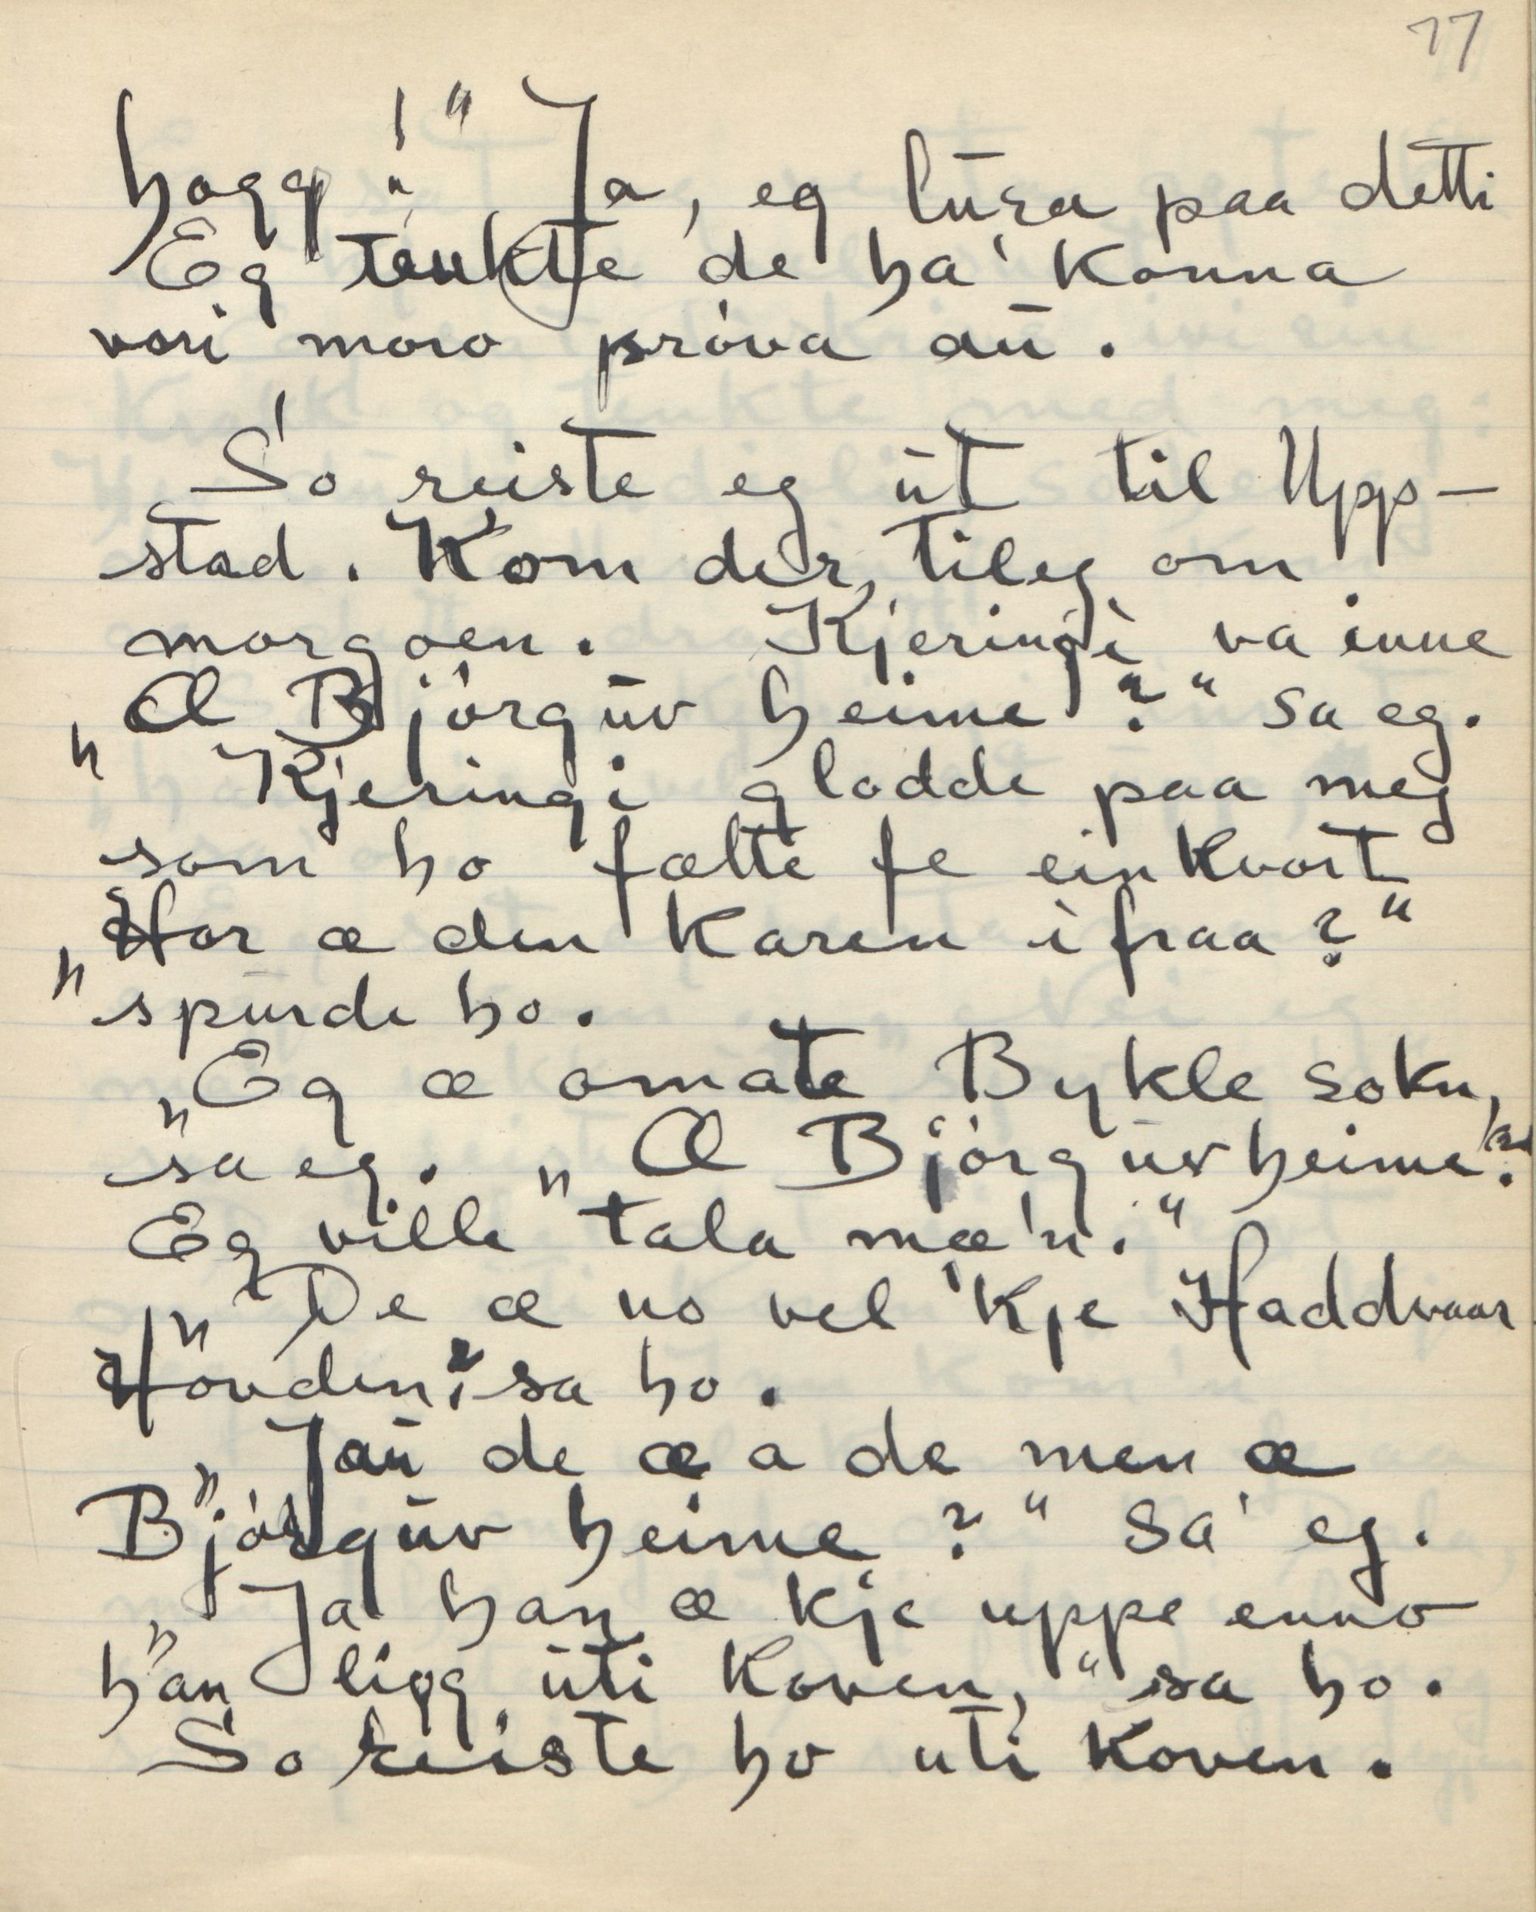 77
hogg!" Ja, eg lura paa detti
Eg tenkte de ha' konna
vori moro pröva au.
So reiste eg ut til Upp-
stad. Kom der, tileg om
morgoen. Kjeringi va inne
"Æ Björguv heime?" sa eg.
Kjeringi glodde paa meg
som ho fætte fe einkvort
"Hor æ den karen ifraa?"
spurde ho.
"Eg æ omate Bykle sokn,
sa eg. "Æ Björguv heime?"
Eg ville tala mæ'n."
"De æ no vel 'kje Haddvaar
Hovden? sa ho.
"Jau de æ a de men æ
Björguv heime?" sa' eg.
"Ja han æ kje uppe enno
han ligg uti koven," sa ho.
So reiste ho uti koven.